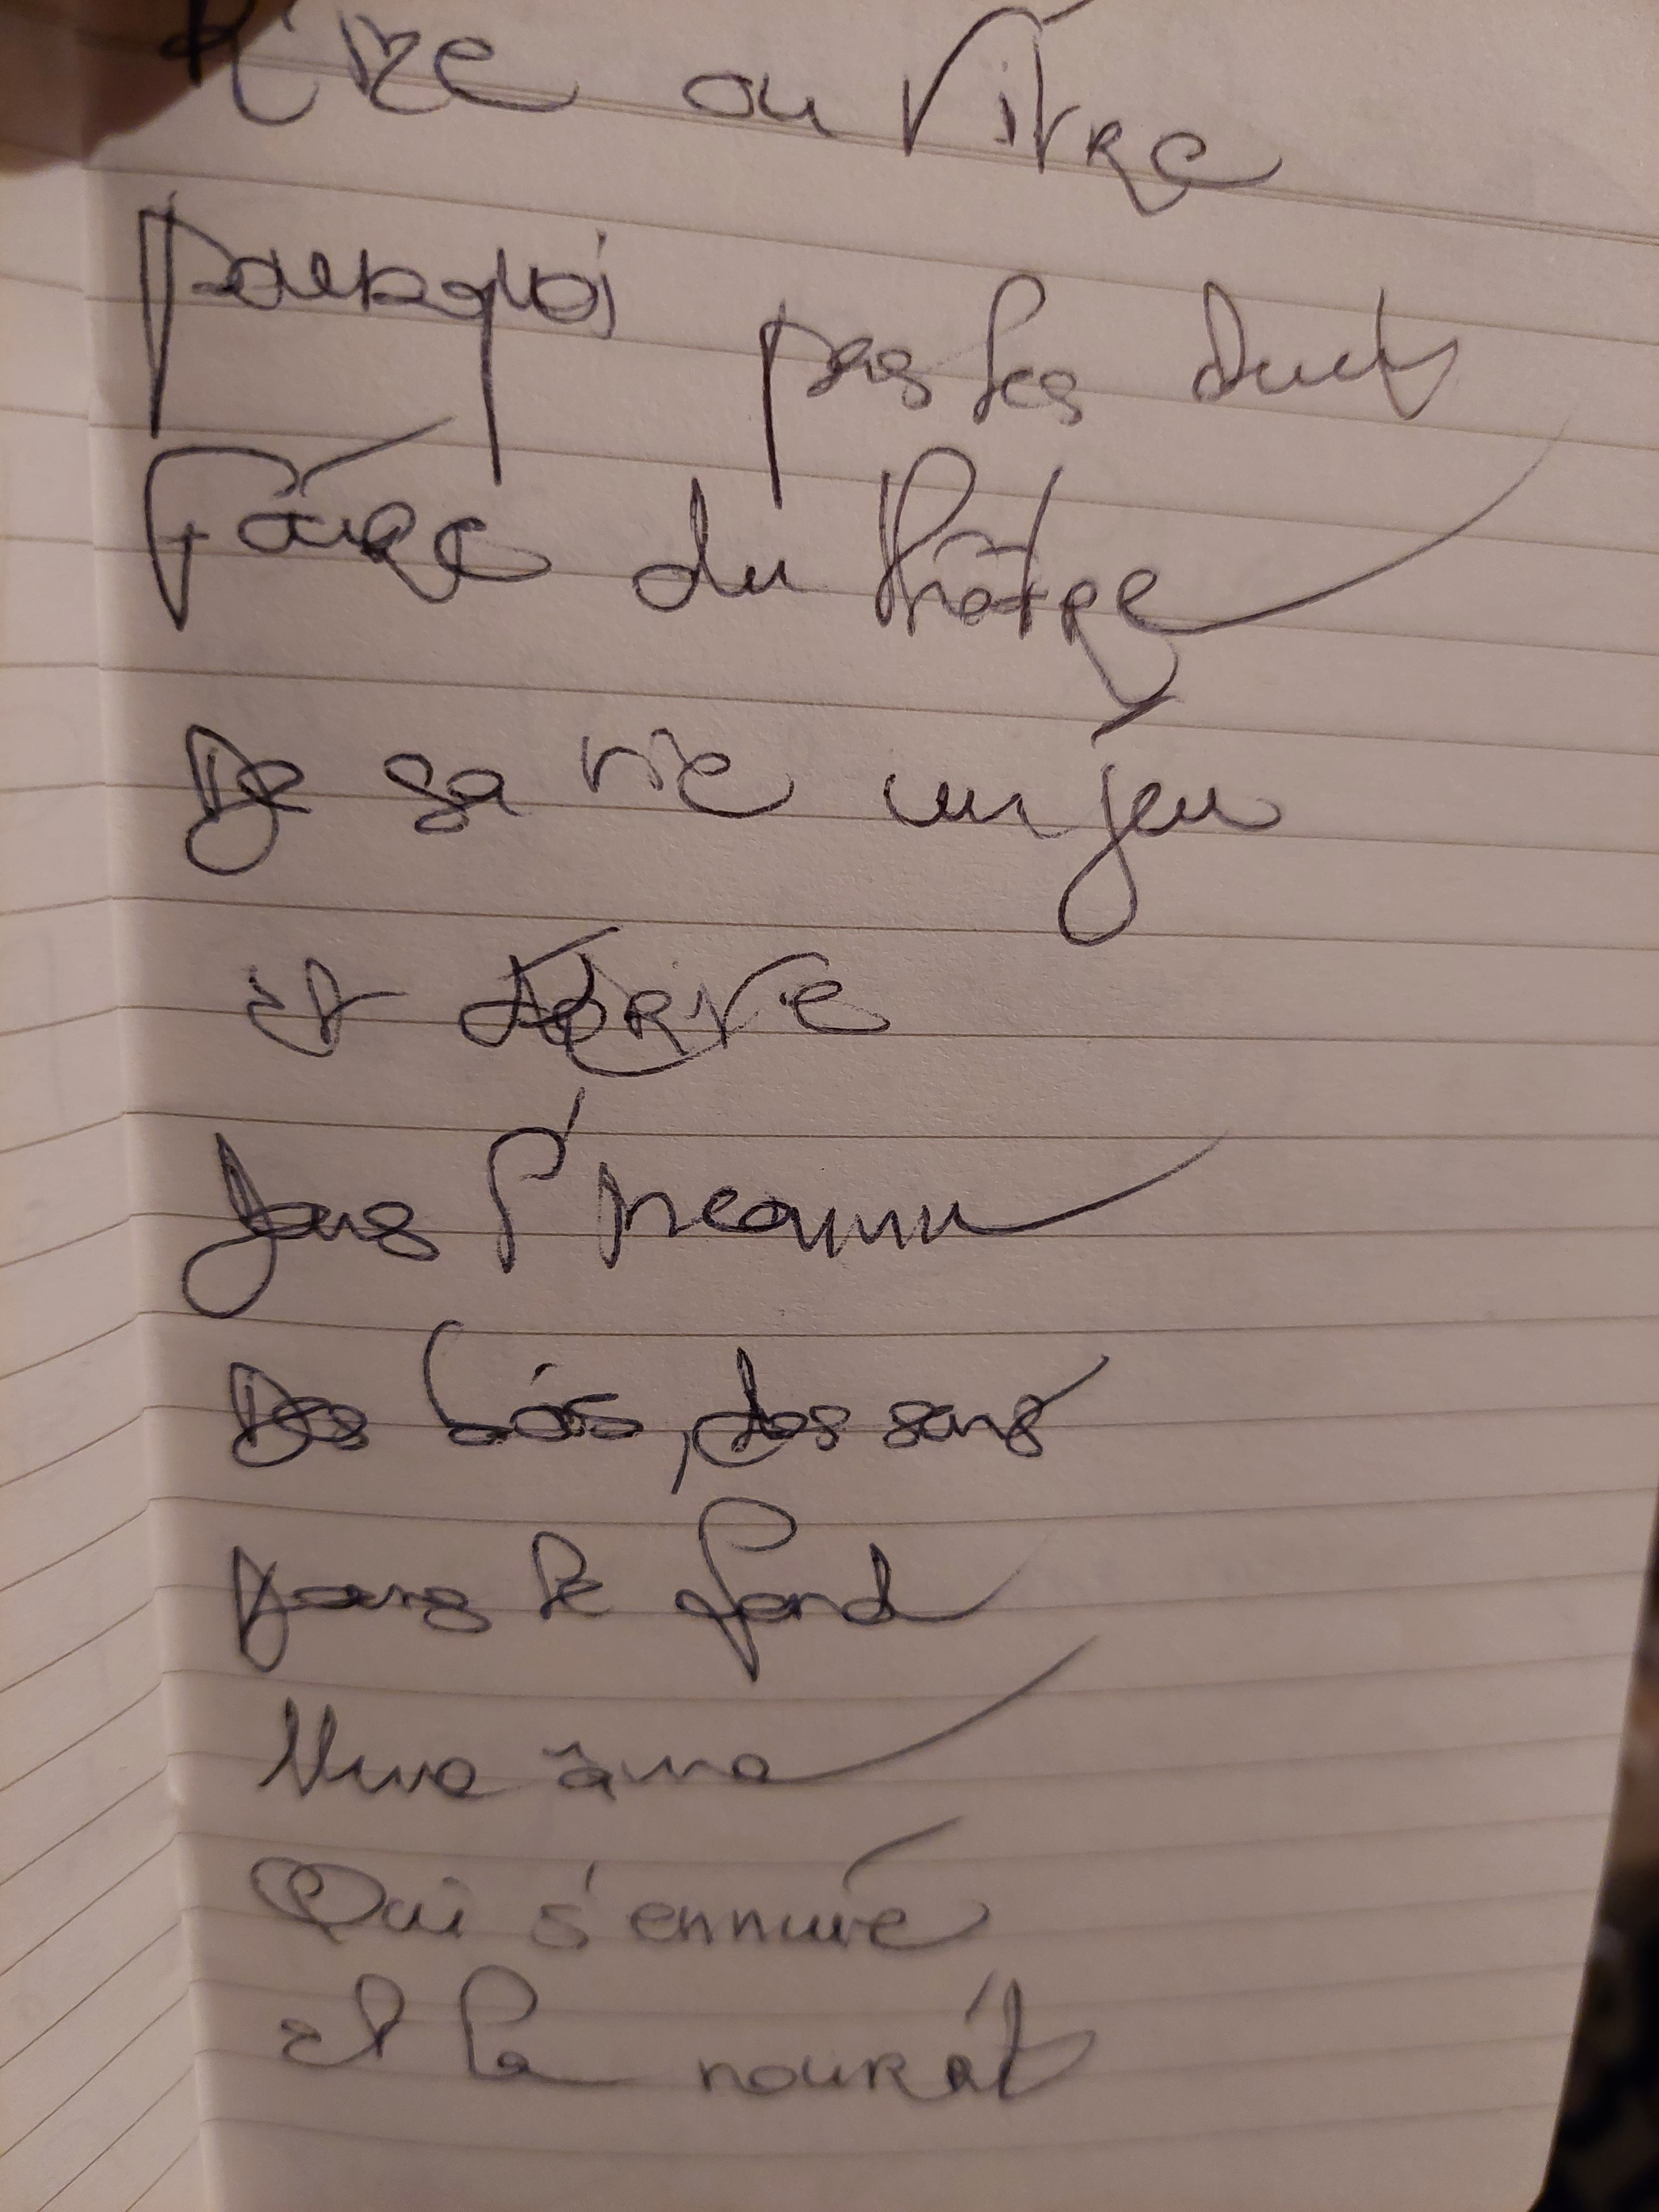 ou Vivre
pourquoi pas les deux
Faire du théâtre
De sa vie un jeu
et
Dans l'inconnu
Des lois, des sens
Dans le fond
d'une âme
Qui s'ennuie
et la nourrit